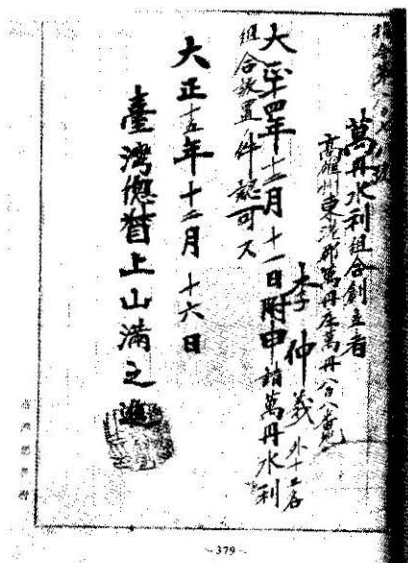 萬丹水利組合創立者
高雄州東港郡萬丹庄萬丹八百八番地
李仲義 外十三名
大正十四年十二月十一日附申請萬丹水利
組合設置ノ件認可ス
大正十五年十二月十六日
臺灣總督上山滿之進
- 379 -